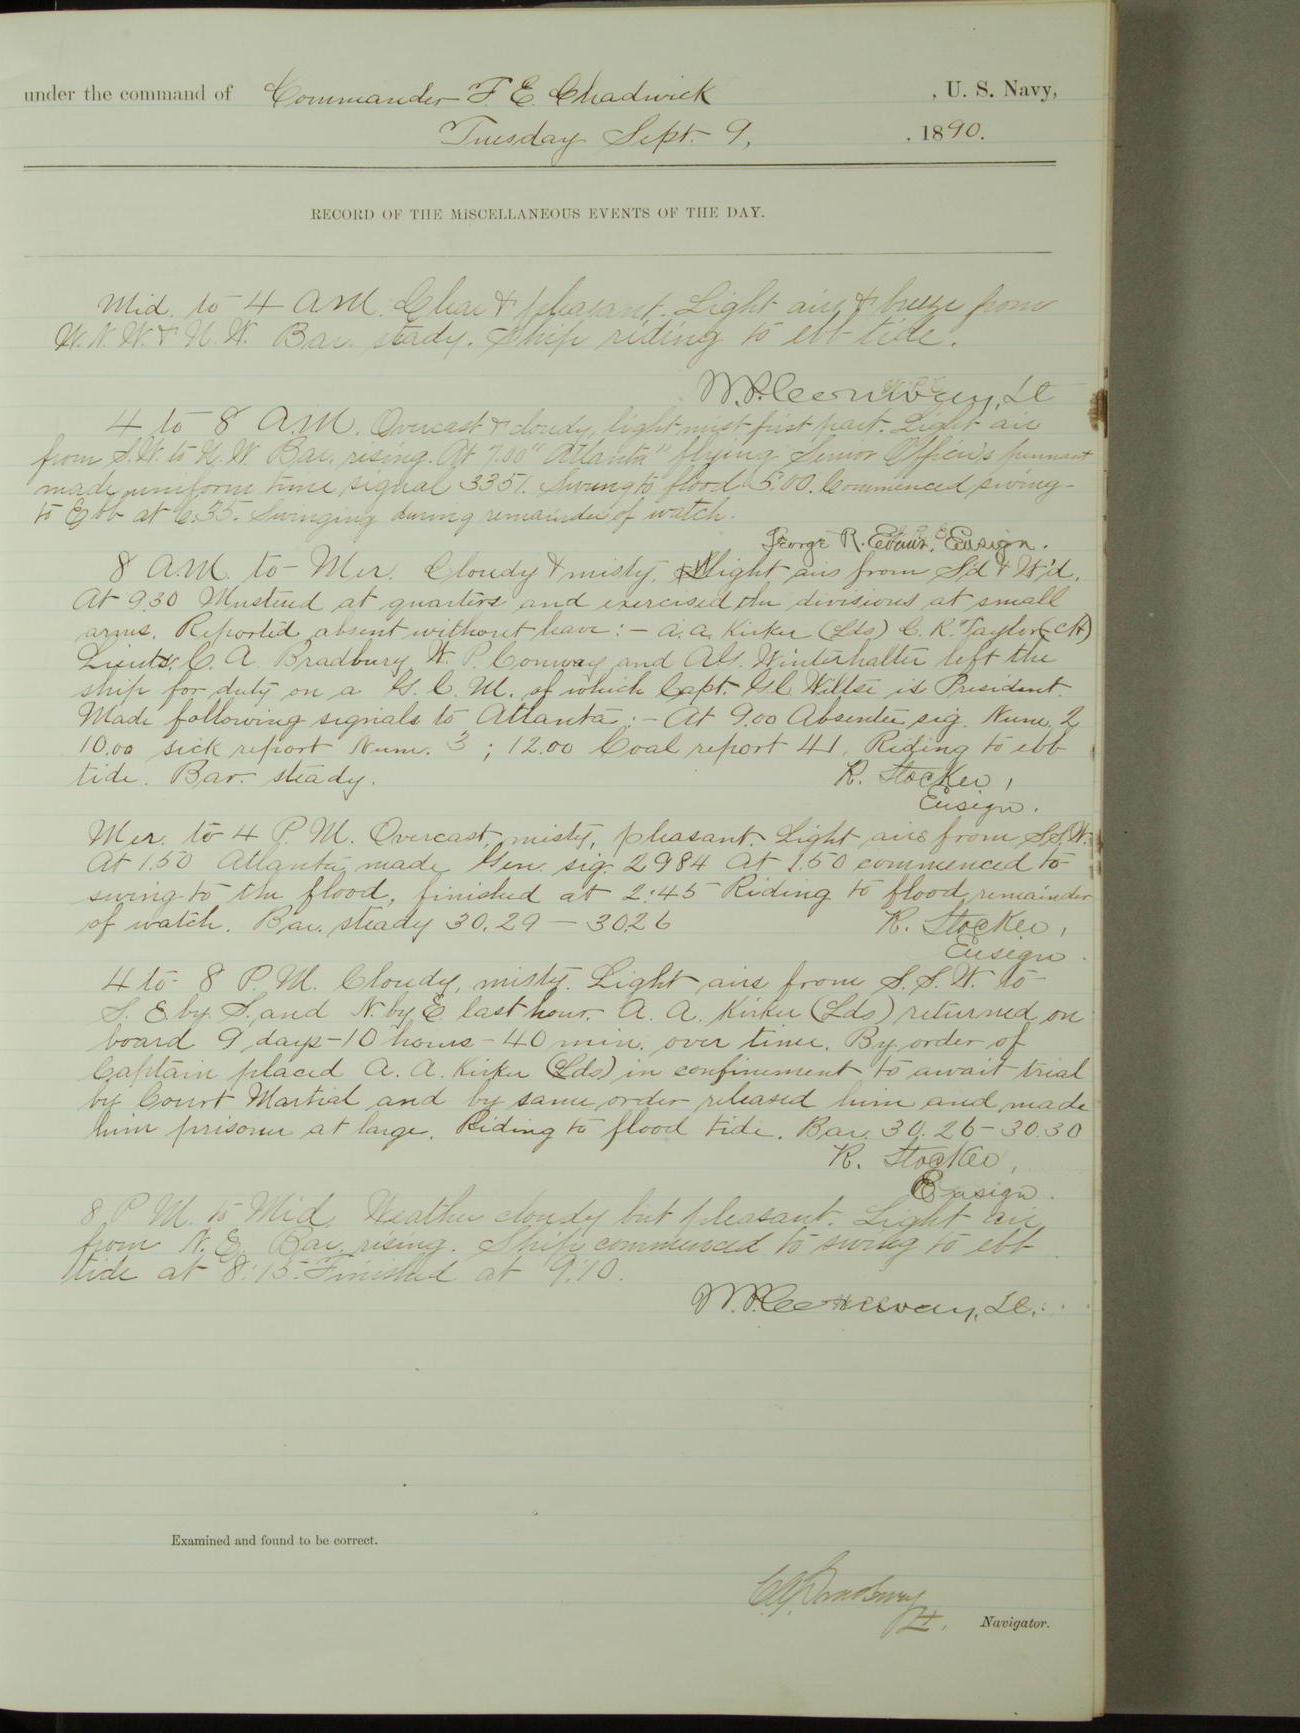 under the command of Commander F. E. Chadwick , U. S. Navy,
Tuesday Sept. 9, , 1890.
RECORD OF THE MISCELLANEOUS EVENTS OF THE DAY.
Mid. to 4 A.M. Clear & pleasant. Light airs & breeze from
W.N.W. & N.W. Bar. steady. Ship riding to ebb tide.
W.P. Conway, Lt
4 to 8 A.M. Overcast & cloudy, light mist first part. Light air
from S.W. to N.W. Bar. rising. At 7.00 "Atlanta" flying Senior Officer's pennant
made uniform time signal 3351. Swung to flood 5.00. Commenced swing-
to Ebb at 6.35. Swinging during remainder of watch.
George R. Evans, Ensign.
8 A.M. to Mer. Cloudy & misty. Light airs from S'd & W'd.
At 9.30 Mustered at quarters and exercised the divisions at small
arms. Reported absent without leave:- A. A. Kirker (Lds) C. R. Taylor
Lieuts. C. A. Bradbury, W. P. Conway and A.G. Winterhalter left the
ship for duty on a G. C. M. of which Capt. G.C. Wiltse is President.
Made following signals to Atlanta:- At 9.00 Absentee sig. Num. 2
10.00 sick report Num. 3 ; 12.00 Coal report 41. Riding to ebb
tide. Bar. steady. R. Stocker,
Ensign.
Mer. to 4 P.M. Overcast, misty, pleasant. Light airs from S.S.W.
At 1.50 Atlanta made Gen. sig. 2984 At 1.50 commenced to
swing to the flood, finished at 2:45 Riding to flood remainder
of watch. Bar. steady 30.29 - 30.26 R. Stocker,
Ensign.
4 to 8 P.M. Cloudy, misty. Light airs from S.S.W. to
S. E. by S. and N. by E. last hour. A. A. Kirker (Lds) returned on
board 9 days - 10 hours - 40 min. over time. By order of
Captain placed A. A. Kirker (Lds) in confinement to await trial
by Court Martial and by same order released him and made
him prisoner at large. Riding to flood tide. Bar. 30.26 - 30.30
R. Stocker,
Ensign.
8 P.M. to Mid. Weather cloudy but pleasant. Light air
from N. E. Bar. rising. Ship commenced to swing to ebb
tide at 8:15. Finished at 9:10.
W.P. Conway, Lt.
Examined and found to be correct.
C.A. Bradbury
Lt. Navigator.